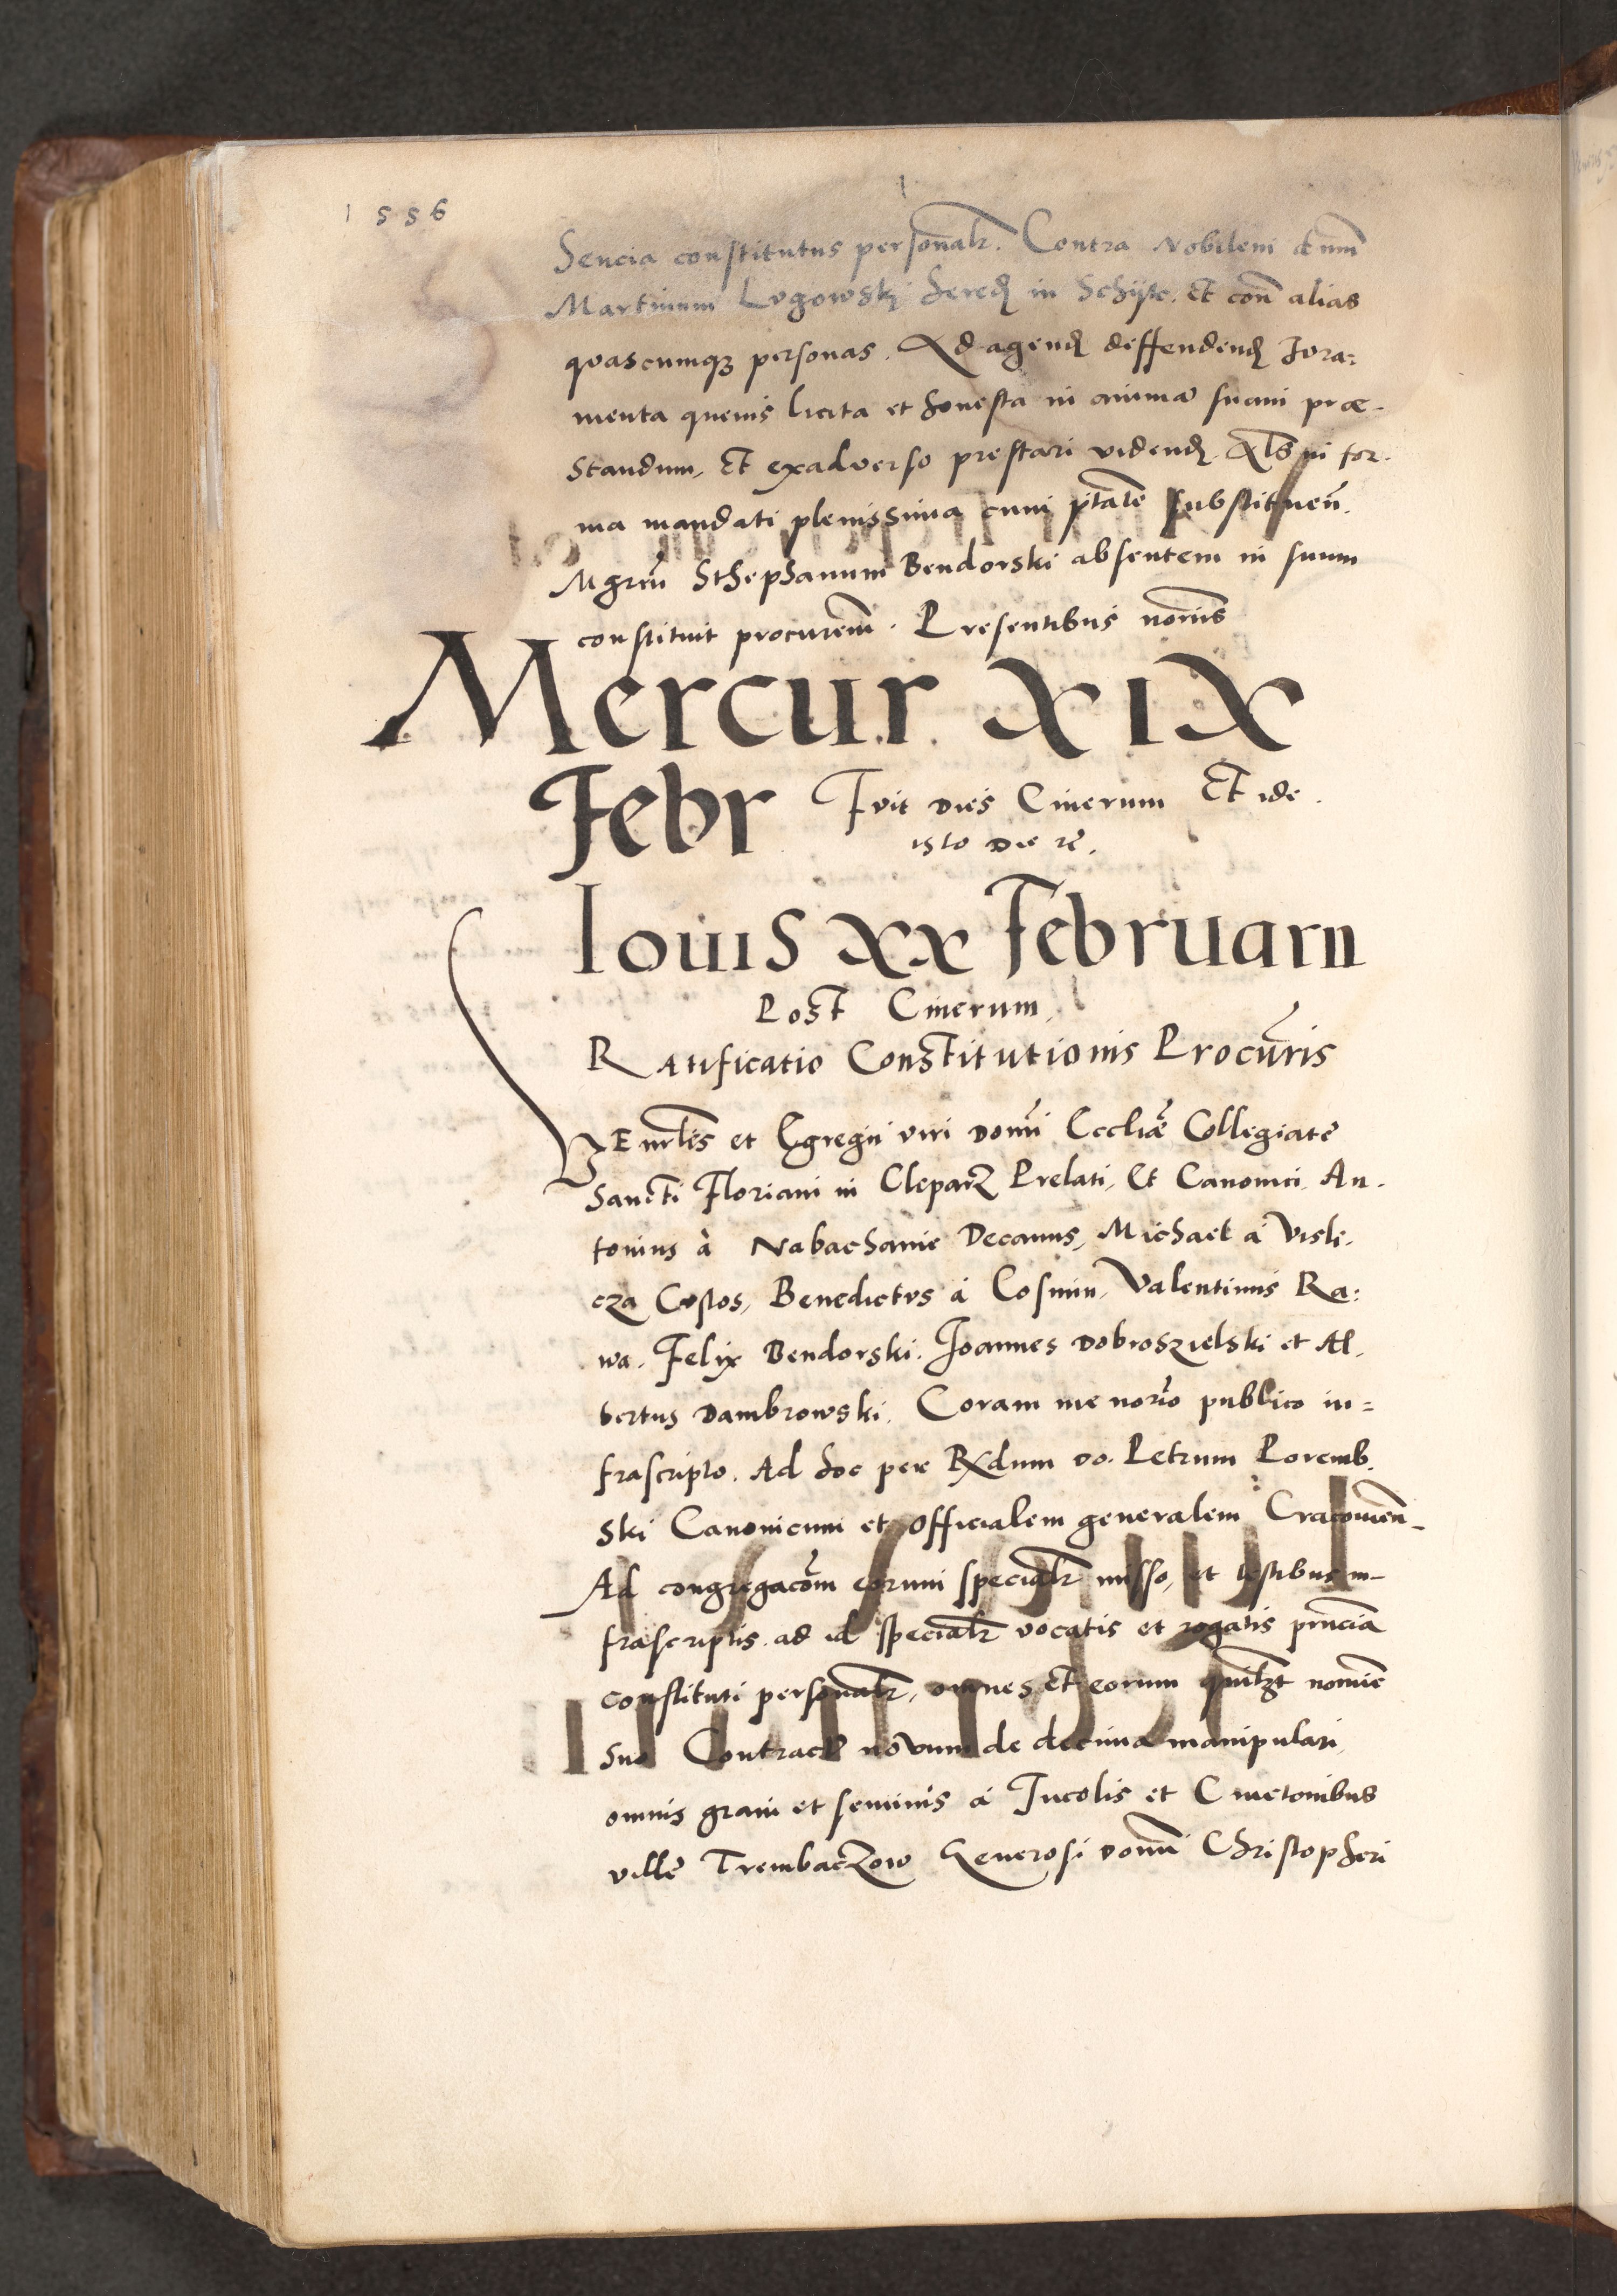 1556
Sencia constitutus personalr. Contra Nobilem dnum
Martinum Lvgowski hered in Schÿtc. Et con alias
qvascumq personas. Ad agend deffendend Jvra:
menta quevis licita et honesta in anima suam præ-
standum, Et exadverso prestari vidend. Als in for.
ma mandati plenissima cum ptate substituen.
Mgrm Sthephanum Bendorski absentem in suum
constituit procurem. Presentibus nomis
Mercur XIX
Febr Fvit dies Cinerum Et ide.
isto die re.
Iouis xx Februarii
Post Cinerum
Ratificatio Constitutionis Procuris
Venrles et Egregii viri domi Eccliæ Collegiate
Sancti Floriani in Clepar Prelati, Et Canonici An-
tonius à Nabachanie Decanus, Michael á Visli-
cza Cvstos, Benedictvs á Cosmin, Valentinus Ra:
wa. Felix Bendorski. Joannes Dobroszielski et Al.
bertus Dambrowski. Coram me norio publico in=
frascripto. Ad hoc per Rndum do. Petrum Poremb.
ski Canonicum et officialem generalem Cracouien-
Ad congregacom eorum specialr misso, et testibus in-
frascriptis ad id specialr vocatis et rogatis prncia
constituti personalr, omnes Et eorum quilzt nomie
suo Contract novum de decima manipulari,
omnis grani et seminis á Incolis et Cmetonibus
ville Trembaczow Generosi domi Christopheri